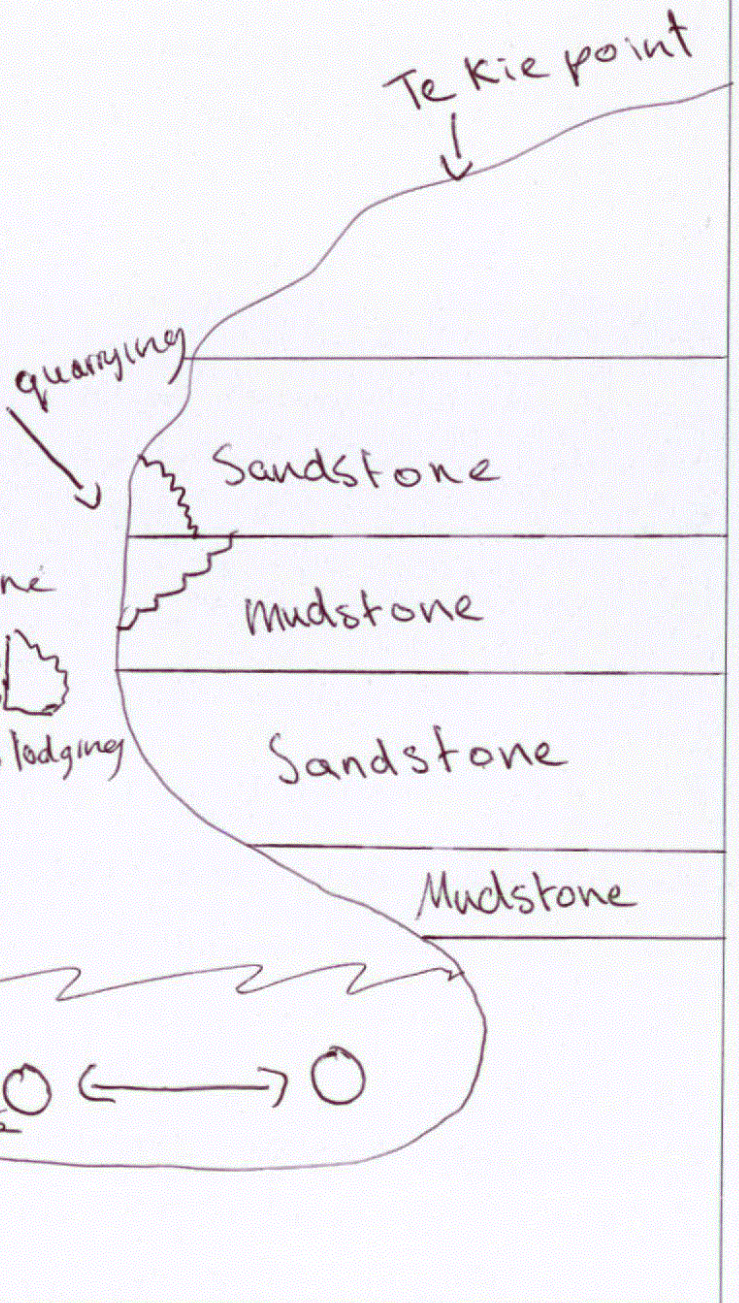 Te Kie point
quarrying
Sandstone
ne
Mudstone
lodging
Sandstone
Mudstone